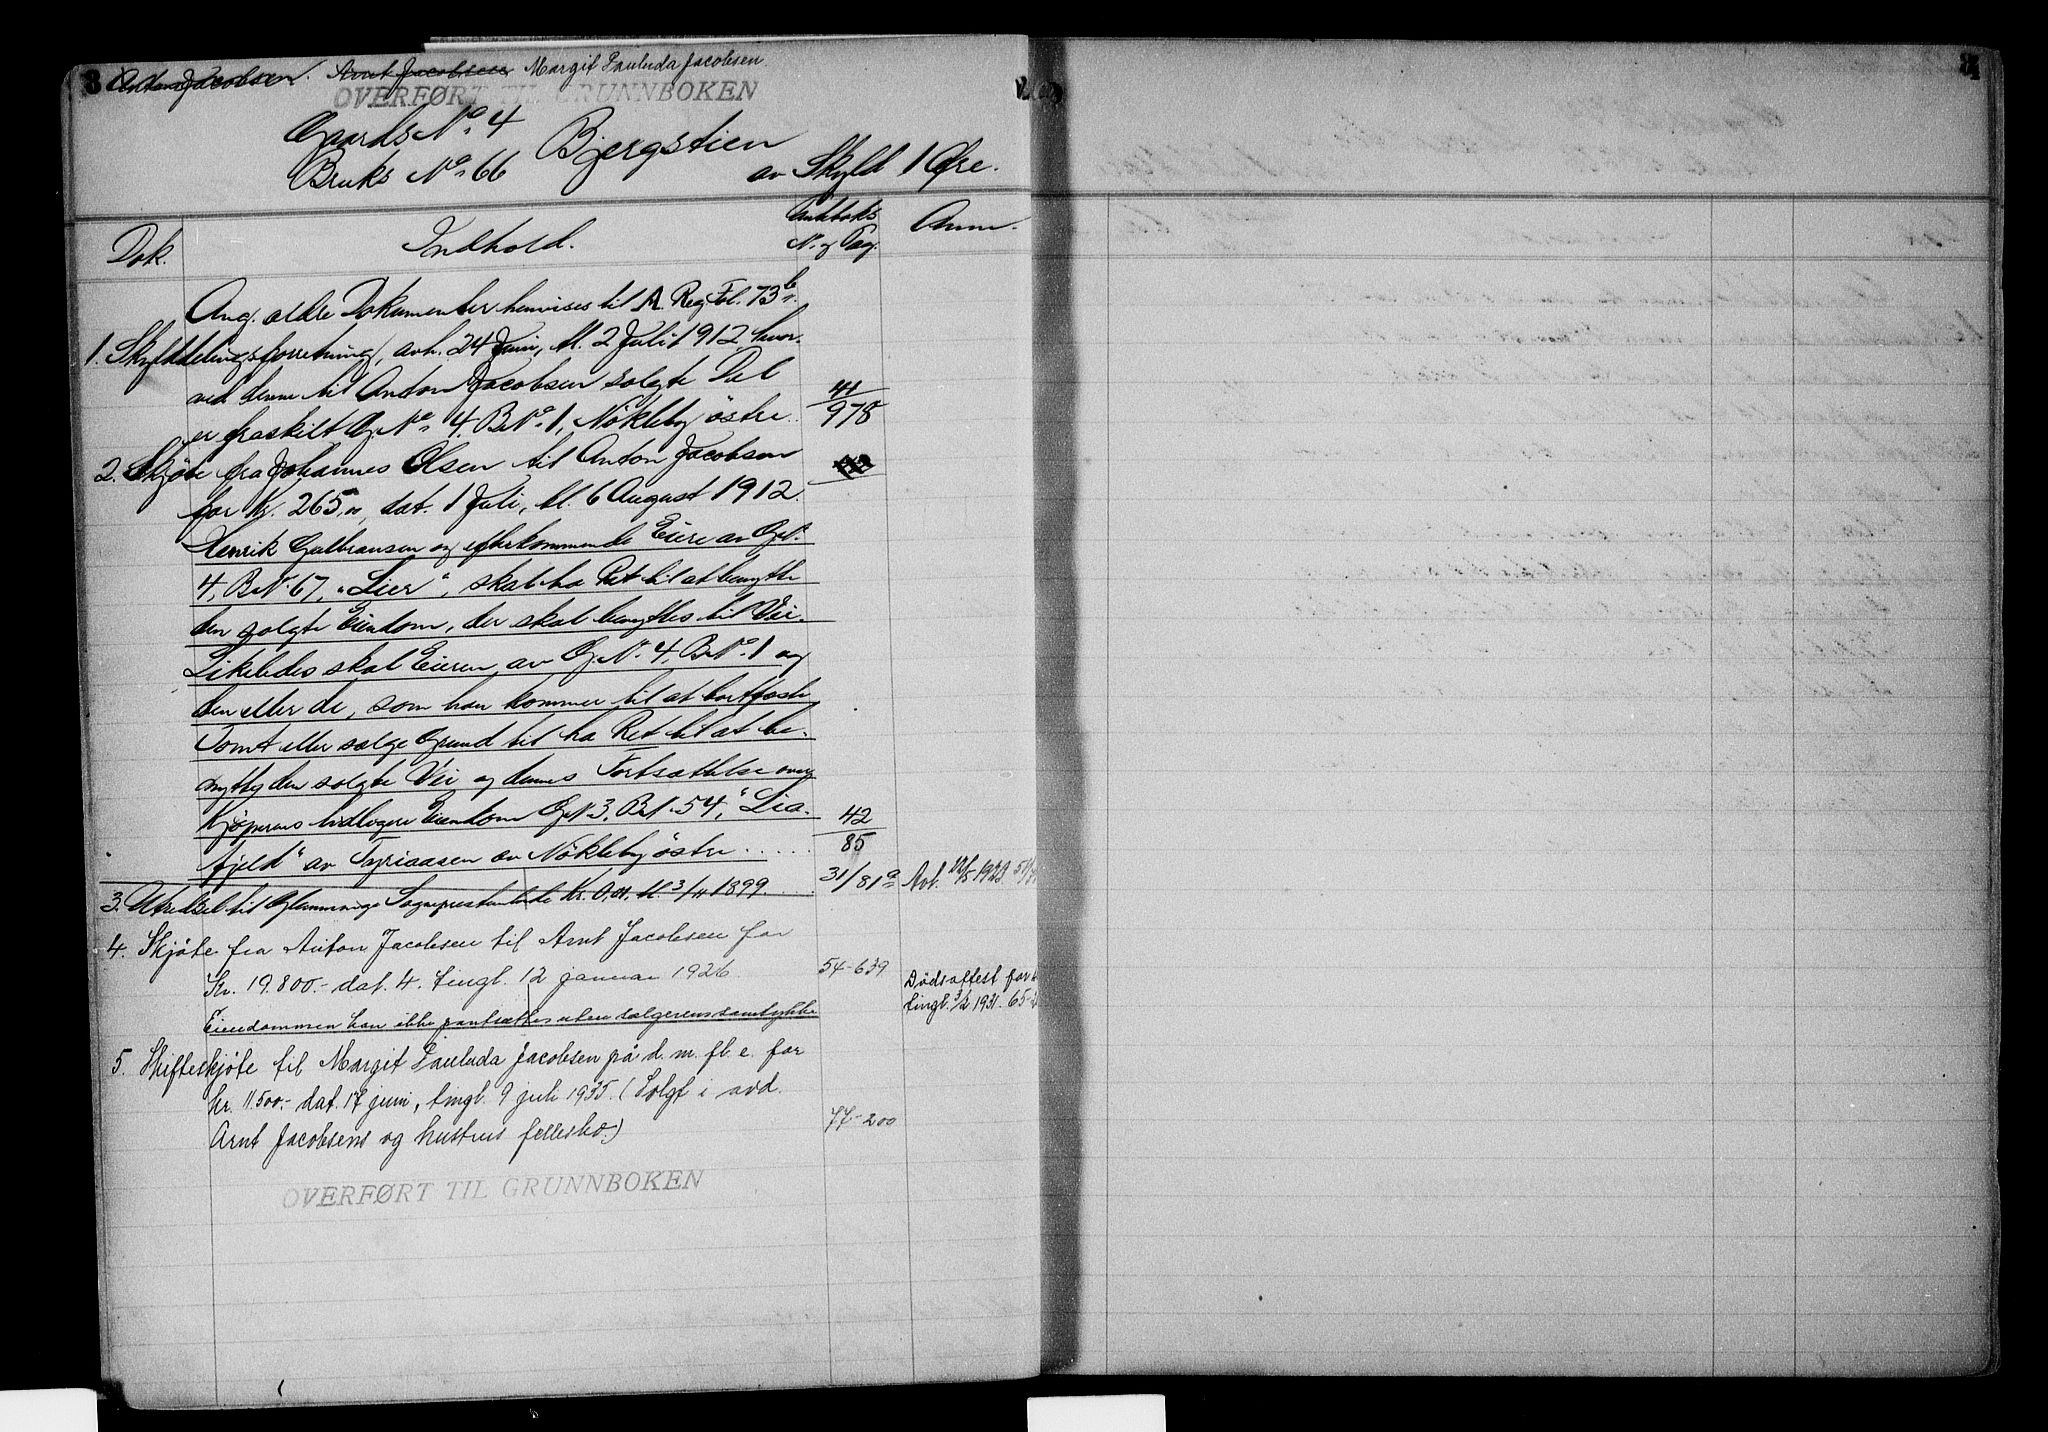 3 Anton Jacobsen. Arnt Jacobsen Margit Pauluda Jacobsen
OVERFØRT TIL GRUNNBOKEN
Gaards No. 4
Bruks No. 66 Bjergstien
av Skyld 1 Øre.
Dok. Indhold. Pantboks No. og Pag. Anm.
Ang. ældre Dokumenter henvises til A. Reg. Fol. 73 b.
1. Skylddelingsforretning, avh. 24 Juni, tl. 2 Juli 1912, hvor-
ved denne til Anton Jacobsen solgte Del
er fraskilt G. No. 4, B. No. 1, Nökleby östre. 41/978
2. Skjöte fra Johannes Olsen til Anton Jacobsen
for Kr. 265, dat. 1 Juli, tl. 6 August 1912.
Henrik Gulbransen og efterkommende Eiere av G. No.
4, B. No. 67, "Lier", skal ha Ret til at benytte
den solgte Eiendom, der skal benyttes til Vei.
Likeledes skal Eieren av G. No. 4, B. No. 1 og
den eller de, som han kommer til at bortfæste
Tomt eller sælge Grund til ha Ret til at be-
nytte den solgte Vei og dennes Fortsættelse over
Kjöperens tidligere Eiendom G. N. 3, B. N. 54, "Lia-
fjeld" av Nökleby östre ..... 42/85
3. til Glemminge Kr. tl. 3/11 1899. 31/81 a Avl. 1923
4. Skjöte fra Anton Jacobsen til Arnt Jacobsen for
Kr. 19.800.- dat. 4. tingl. 12 januar 1926 54-639
Dödsattest for
tingl. 3/2 1931. 65-
Eiendommen kan ikke pantsættes uten sælgerens samtykke
5. Skifteskjöte til Margit Pauluda Jacobsen på d. m. fl. e. for
kr. 11.500.- dat. 17 juni, tingl. 9 juli 1935. (Solgt i avd.
Arnt Jacobsens og hustrus fellesbo.) 77-200
OVERFØRT TIL GRUNNBOKEN